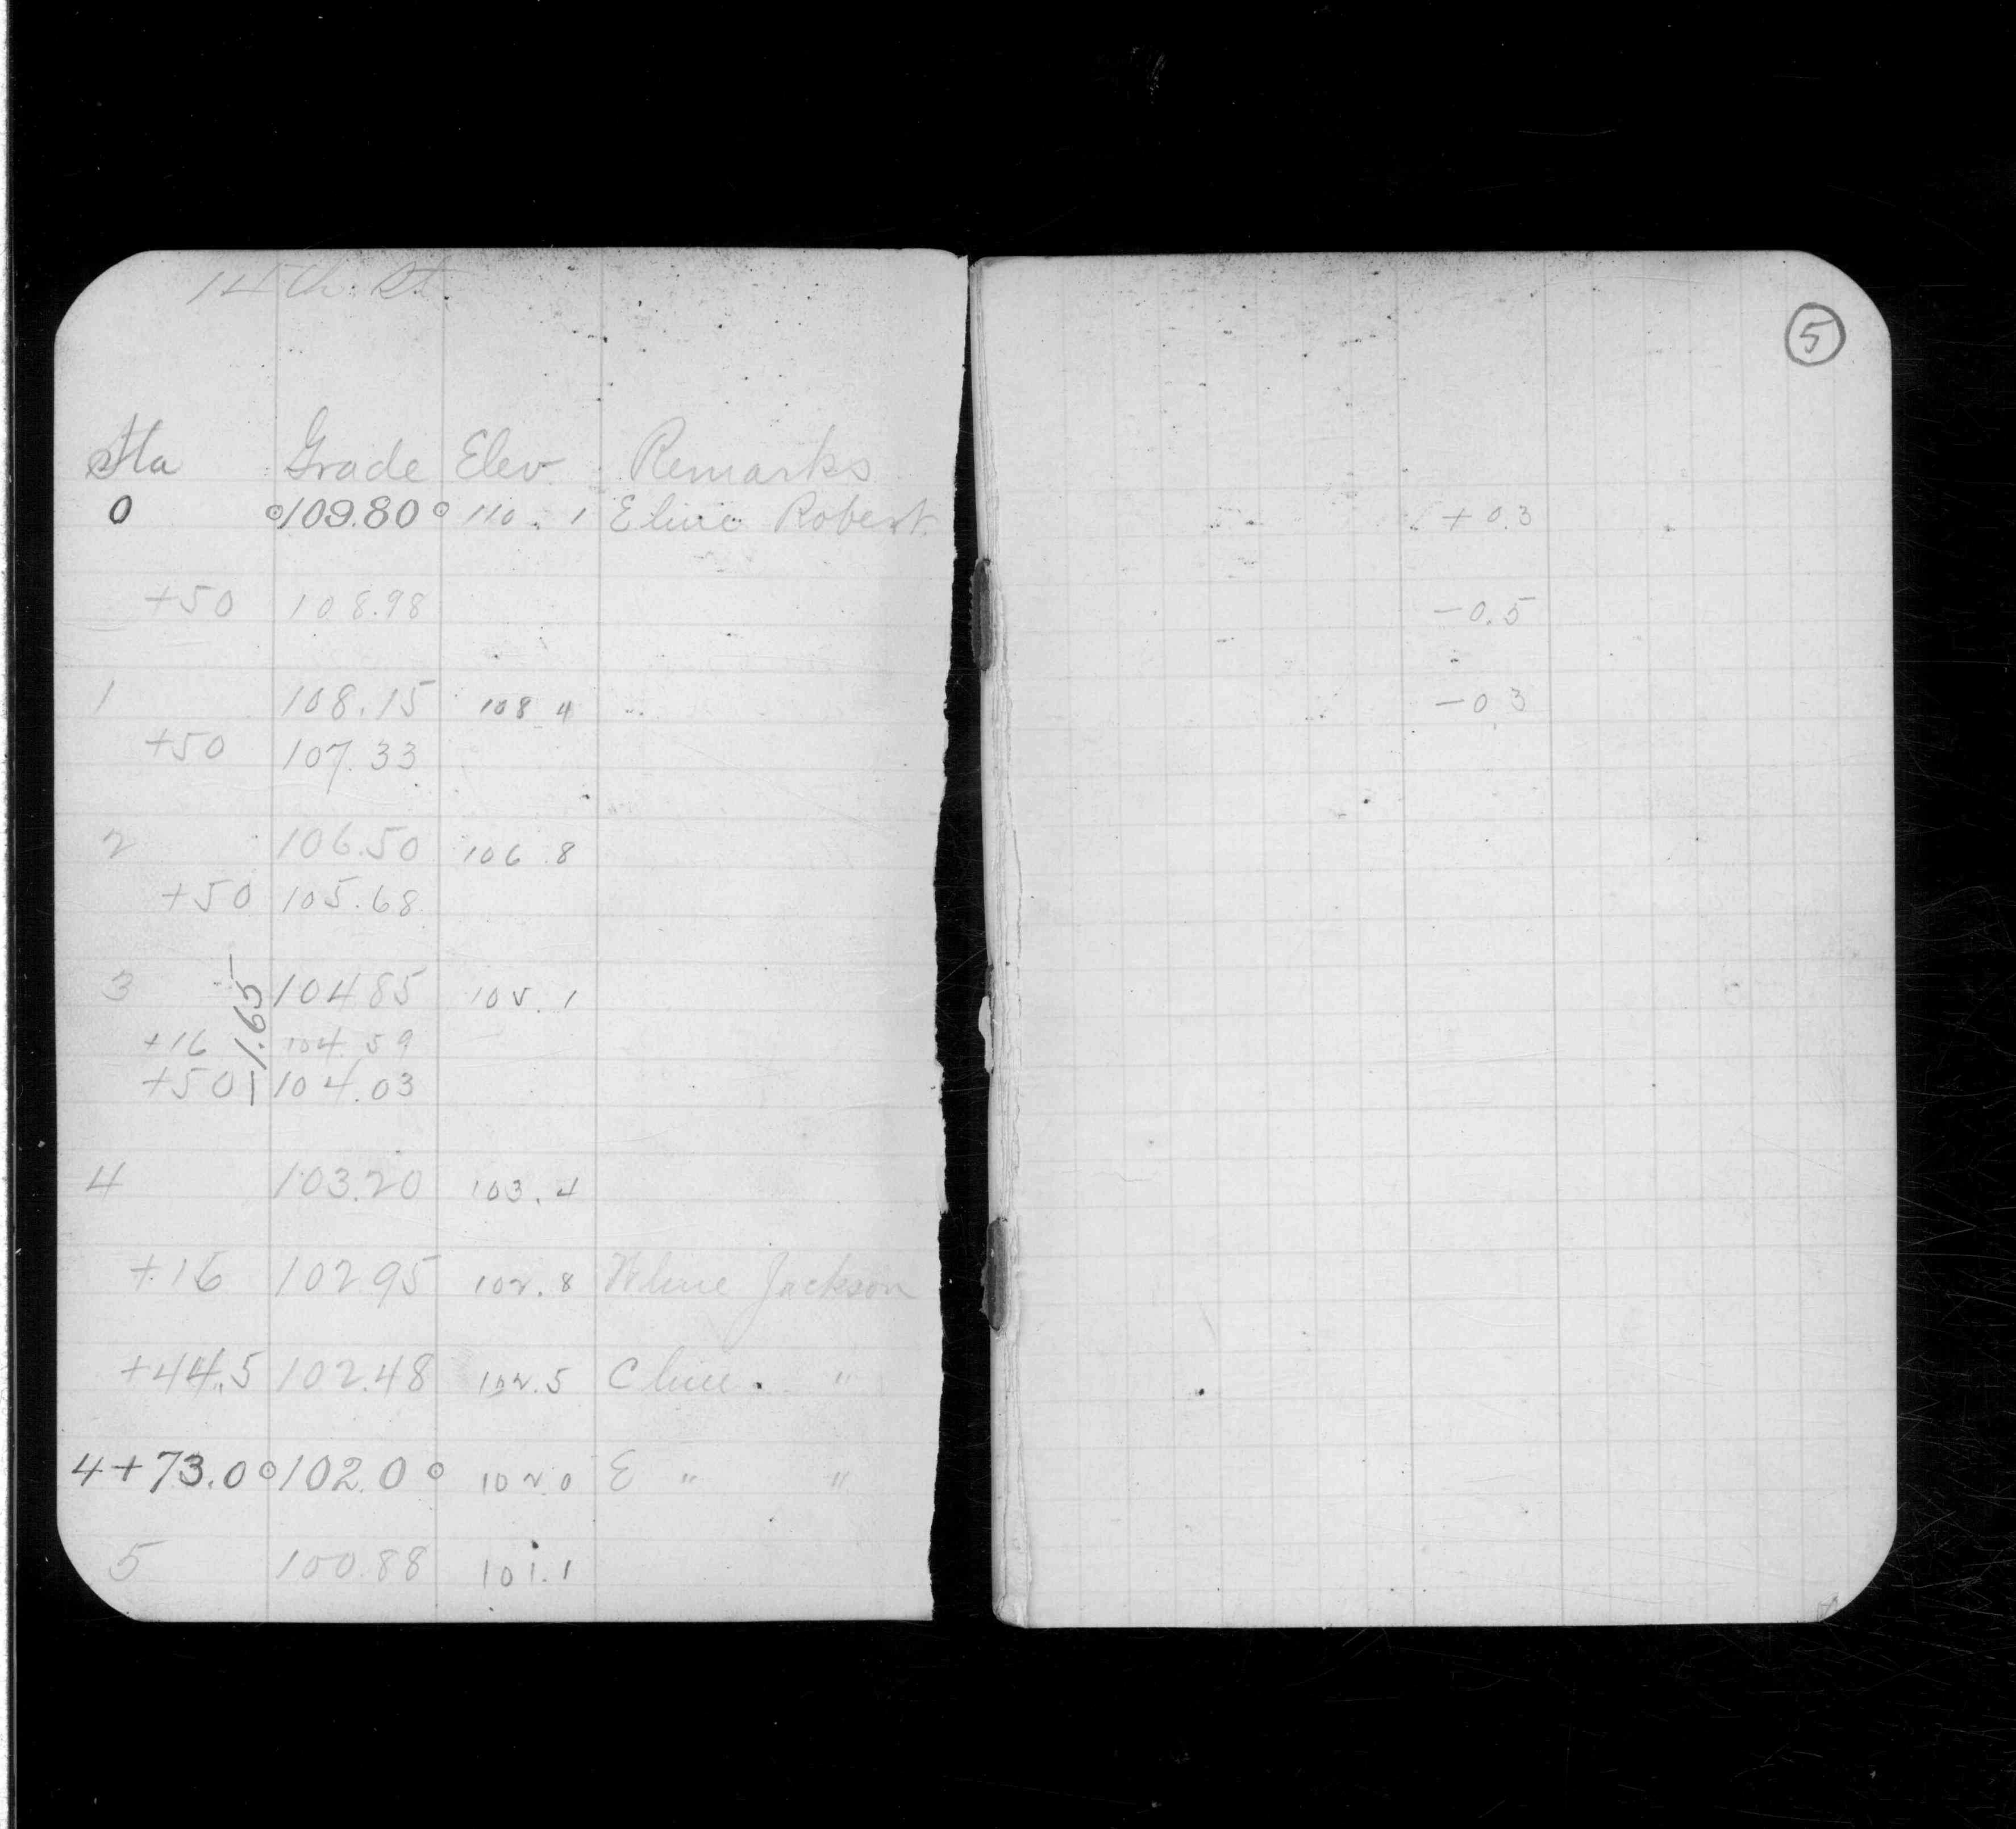 14th St.
Sta Grade Elev Remarks
0 109.80 110.1 E line Robert
+50 108.98
1 108.15 108 4 "
+50 107.33
2 106.50 106.8
+50 105.68
3 104 85 105.1
-1.65
+16 104.59
+50 104.03
4 103.20 103.4
+16 102 95 102.8 W line Jackson
+44.5 102.48 102.5 C line "
4+73.0 102.0 102.0 E " "
5 100.88 101.1
5
+0.3
-0.5
-0.3